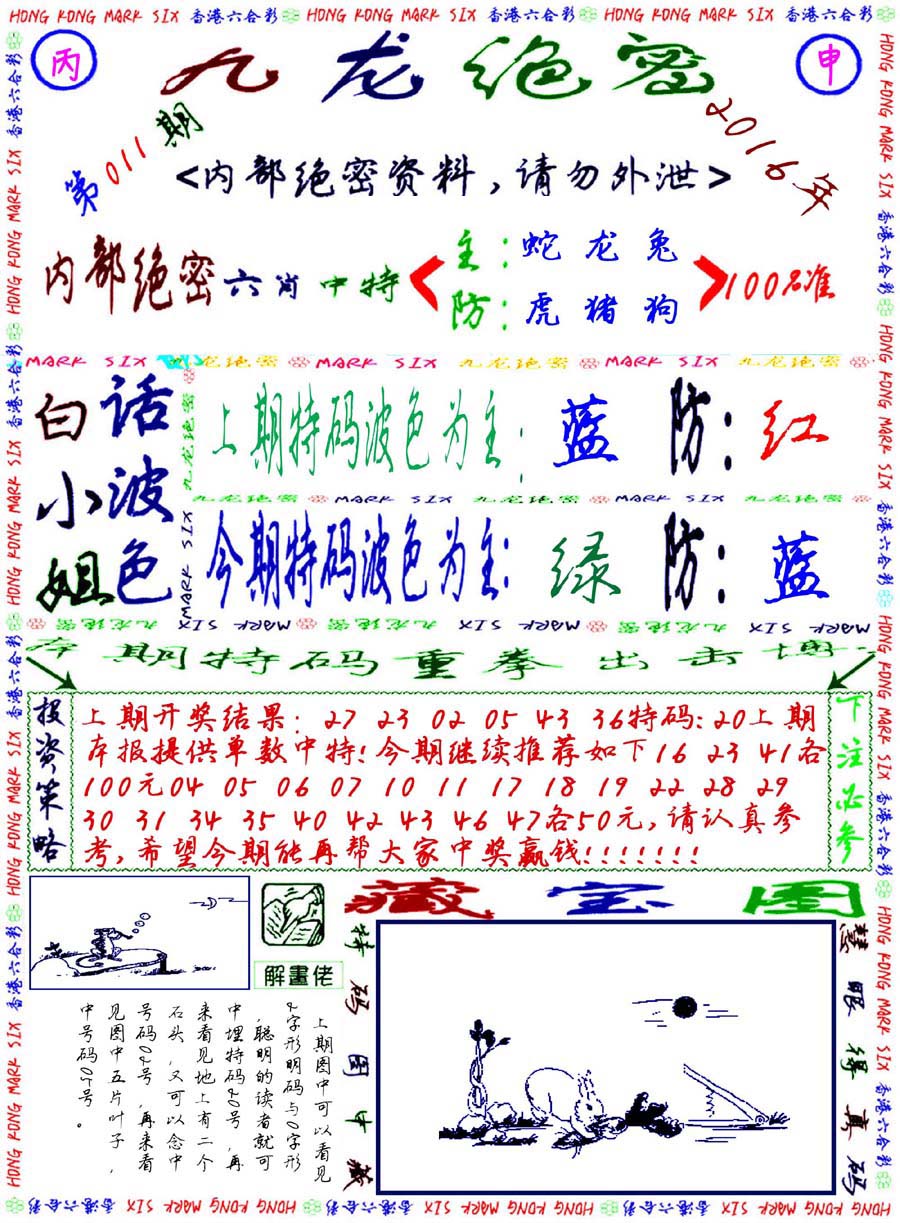 HONG KONG MARK SIX 香港六合彩 HONG KONG MARK SIX 香港六合彩 HONG KONG MARK SIX 香港六合彩
丙
九龙绝密
申
第011期
2016年
<内部绝密资料,请勿外泄>
内部绝密六肖中特
主:蛇龙兔
防:虎猪狗
100%准
MARK SIX 九龙绝密 MARK SIX 九龙绝密 MARK SIX 九龙绝密
白话
小波
姐色
上期特码波色为主:蓝 防:红
九龙绝密 MARK SIX 九龙绝密 MARK SIX 九龙绝密
今期特码波色为主:绿 防:蓝
九龙绝密 MARK SIX 九龙绝密 MARK SIX 九龙绝密 MARK SIX
本期特码重拳出击博
投资策略
上期开奖结果:27 23 02 05 43 36特码:20上期
本报提供单数中特!今期继续推荐如下16 23 41各
100元04 05 06 07 10 11 17 18 19 22 28 29
30 31 34 35 40 42 43 46 47各50元,请认真参
考,希望今期能再帮大家中奖赢钱!!!!!!!
下注必参
解畫佬
藏宝图
特码图中藏
慧眼得真码
上期图中可以看见
2字形明码与0字形
,聪明的读者就可
中埋特码20号,再
来看见地上有二个
石头,又可以念中
号码02号,再来看
见图中五片叶子,
中号码05号。
HONG KONG MARK SIX 香港六合彩 HONG KONG MARK SIX 香港六合彩 HONG KONG MARK SIX 香港六合彩